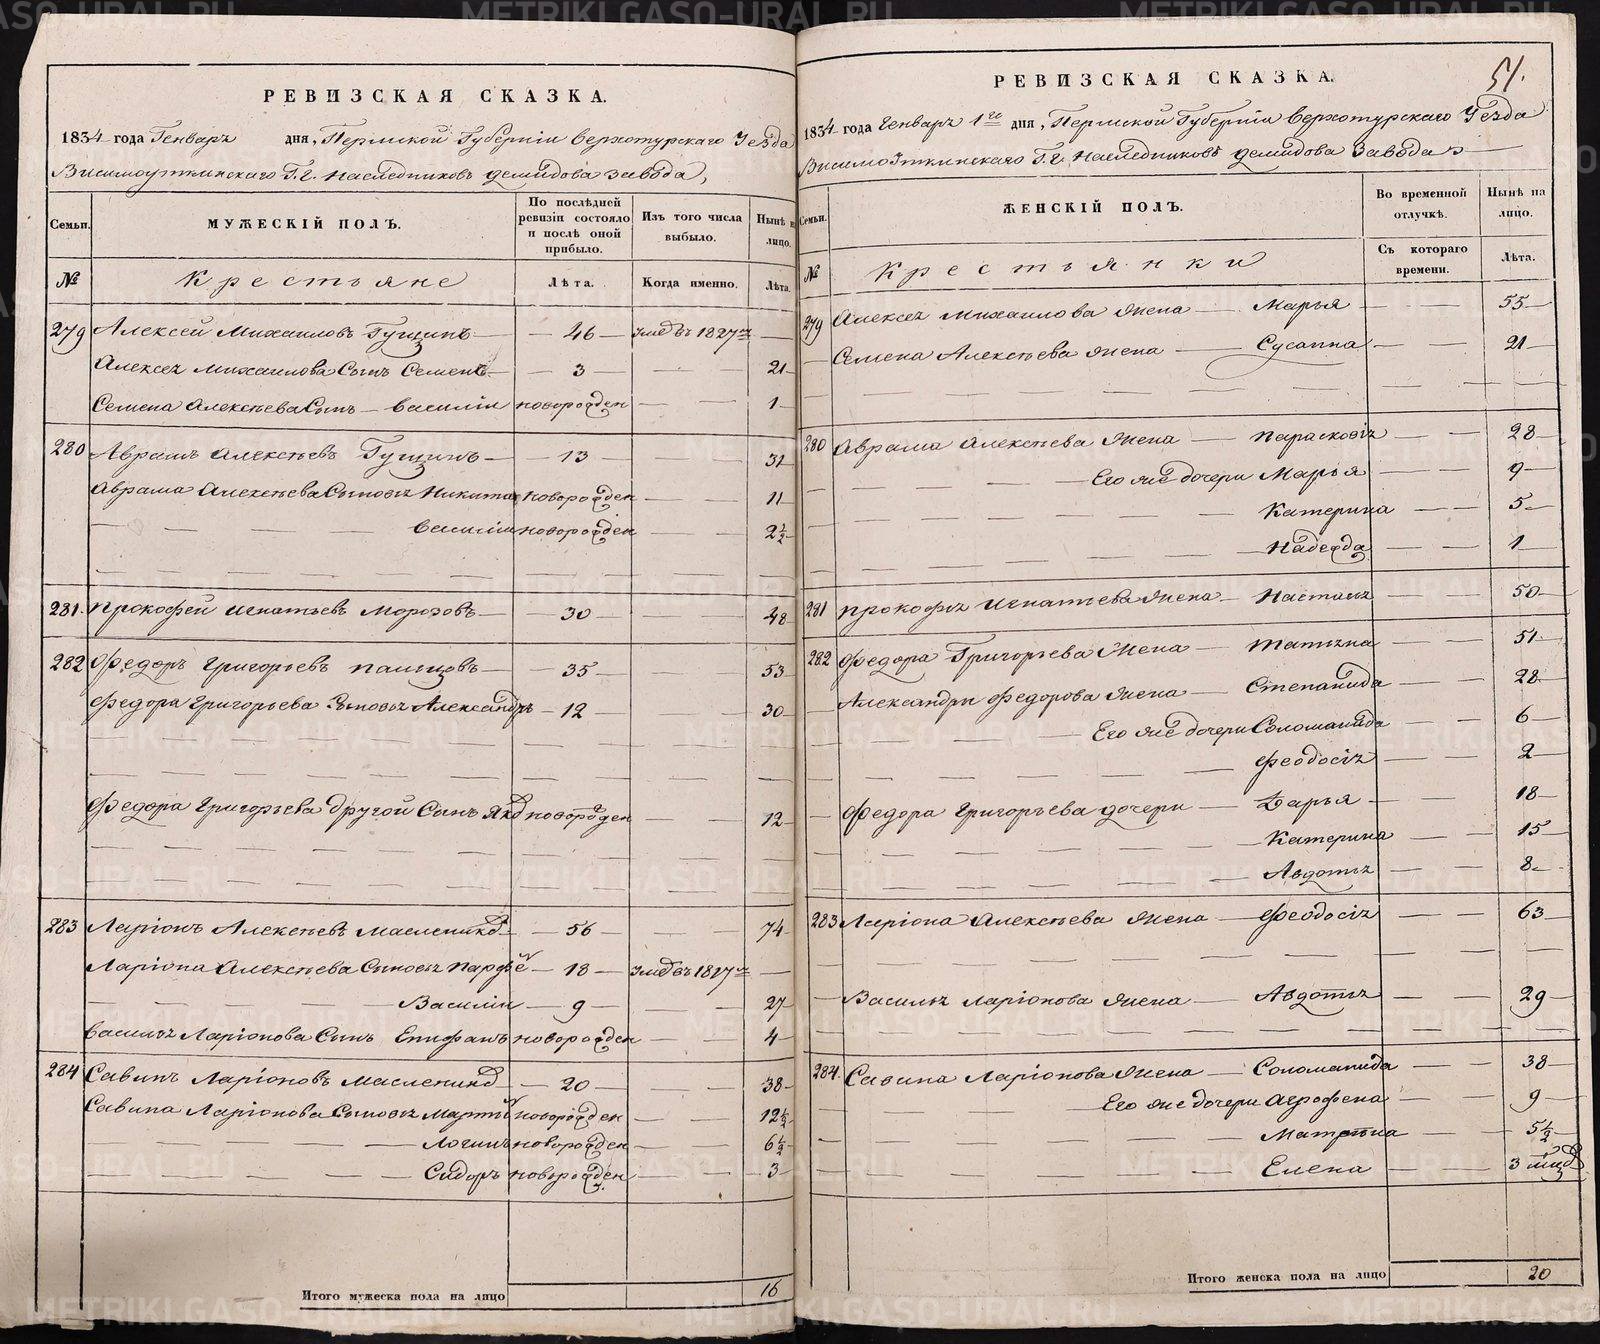 РЕВИЗСКАЯ СКАЗКА.
1834 года Генваръ дня, Пермской Губерніи Верхотурскаго Уезда
Висимоуткинскаго Г.г. наследниковъ демидова завода,
Семьи. МУЖЕСКІЙ ПОЛЪ. По послѣдней ревизіи состояло и послѣ оной прибыло. Изъ того числа выбыло. Нынѣ на лицо.
№ Крестьяне Лѣта. Когда именно. Лѣта.
279 Алексей Михаиловъ Гущинъ 46 умеръ 1827
Алексея Михаилова Сынъ Семенъ 3 21
Семена Алексѣева Сынъ Василіи новорожден 1
280 Аврамъ Алексѣевъ Гущинъ 13 31
Аврама Алексѣева Сыновья Никита новорожден 11
Василіи новорожден 2½
281. Прокофей Игнатьевъ Морозовъ 30 48
282 Федоръ Григорьевъ 35 53
Федора Григорьева Сыновья Александръ 12 30
Федора Григорьева другой Сынъ новорожден 12
283 Ларіонъ Алексѣевъ Маслениковъ 56 74
Ларіона Алексѣева Сыновья Парфѣ 18 умеръ 1827
Василіи 9 27
Василья Ларіонова Сынъ Епифанъ новорожден 4
284 Савинъ Ларіоновъ 20 38
Савина Ларіонова Сыновья Мартынъ новорожден 12½
Логинъ новорожден 6½
Сидоръ новорожден 3
Итого мужеска пола на лицо 16
51.
РЕВИЗСКАЯ СКАЗКА.
1834 года Генваря 1го дня, Пермской Губерніи Верхотурскаго Уезда
Висимоуткинскаго Г.г. наследниковъ демидова Завода
Семьи. ЖЕНСКІЙ ПОЛЪ. Во временной отлучкѣ. Нынѣ на лицо.
№ Крестьянки Съ котораго времени. Лѣта.
279 Алексея Михаилова жена Марья 55
Семена Алексѣева жена Сусанна 21
280 Аврама Алексѣева жена Парасковья 28
Его же дочери Марья 9
Катерина 5
Надежда 1
281 Прокофья Игнатьева жена Настасья 50
282 Федора Григорьева жена Татьяна 51
Александры Федорова жена Степанида 28
Его же дочери Соломанида 6
Феодосія 2
Федора Григорьева дочери Дарья 18
Катерина 15
Авдотья 8
283 Ларіона Алексѣева жена Феодосія 63
Василья Ларіонова жена Авдотья 29
284 Савина Ларіонова жена Соломанида 38
Его же дочери Агрофена 9
Матрена 5½
Елена 3
Итого женска пола на лицо 20
METRIKI.GASO-URAL.RU